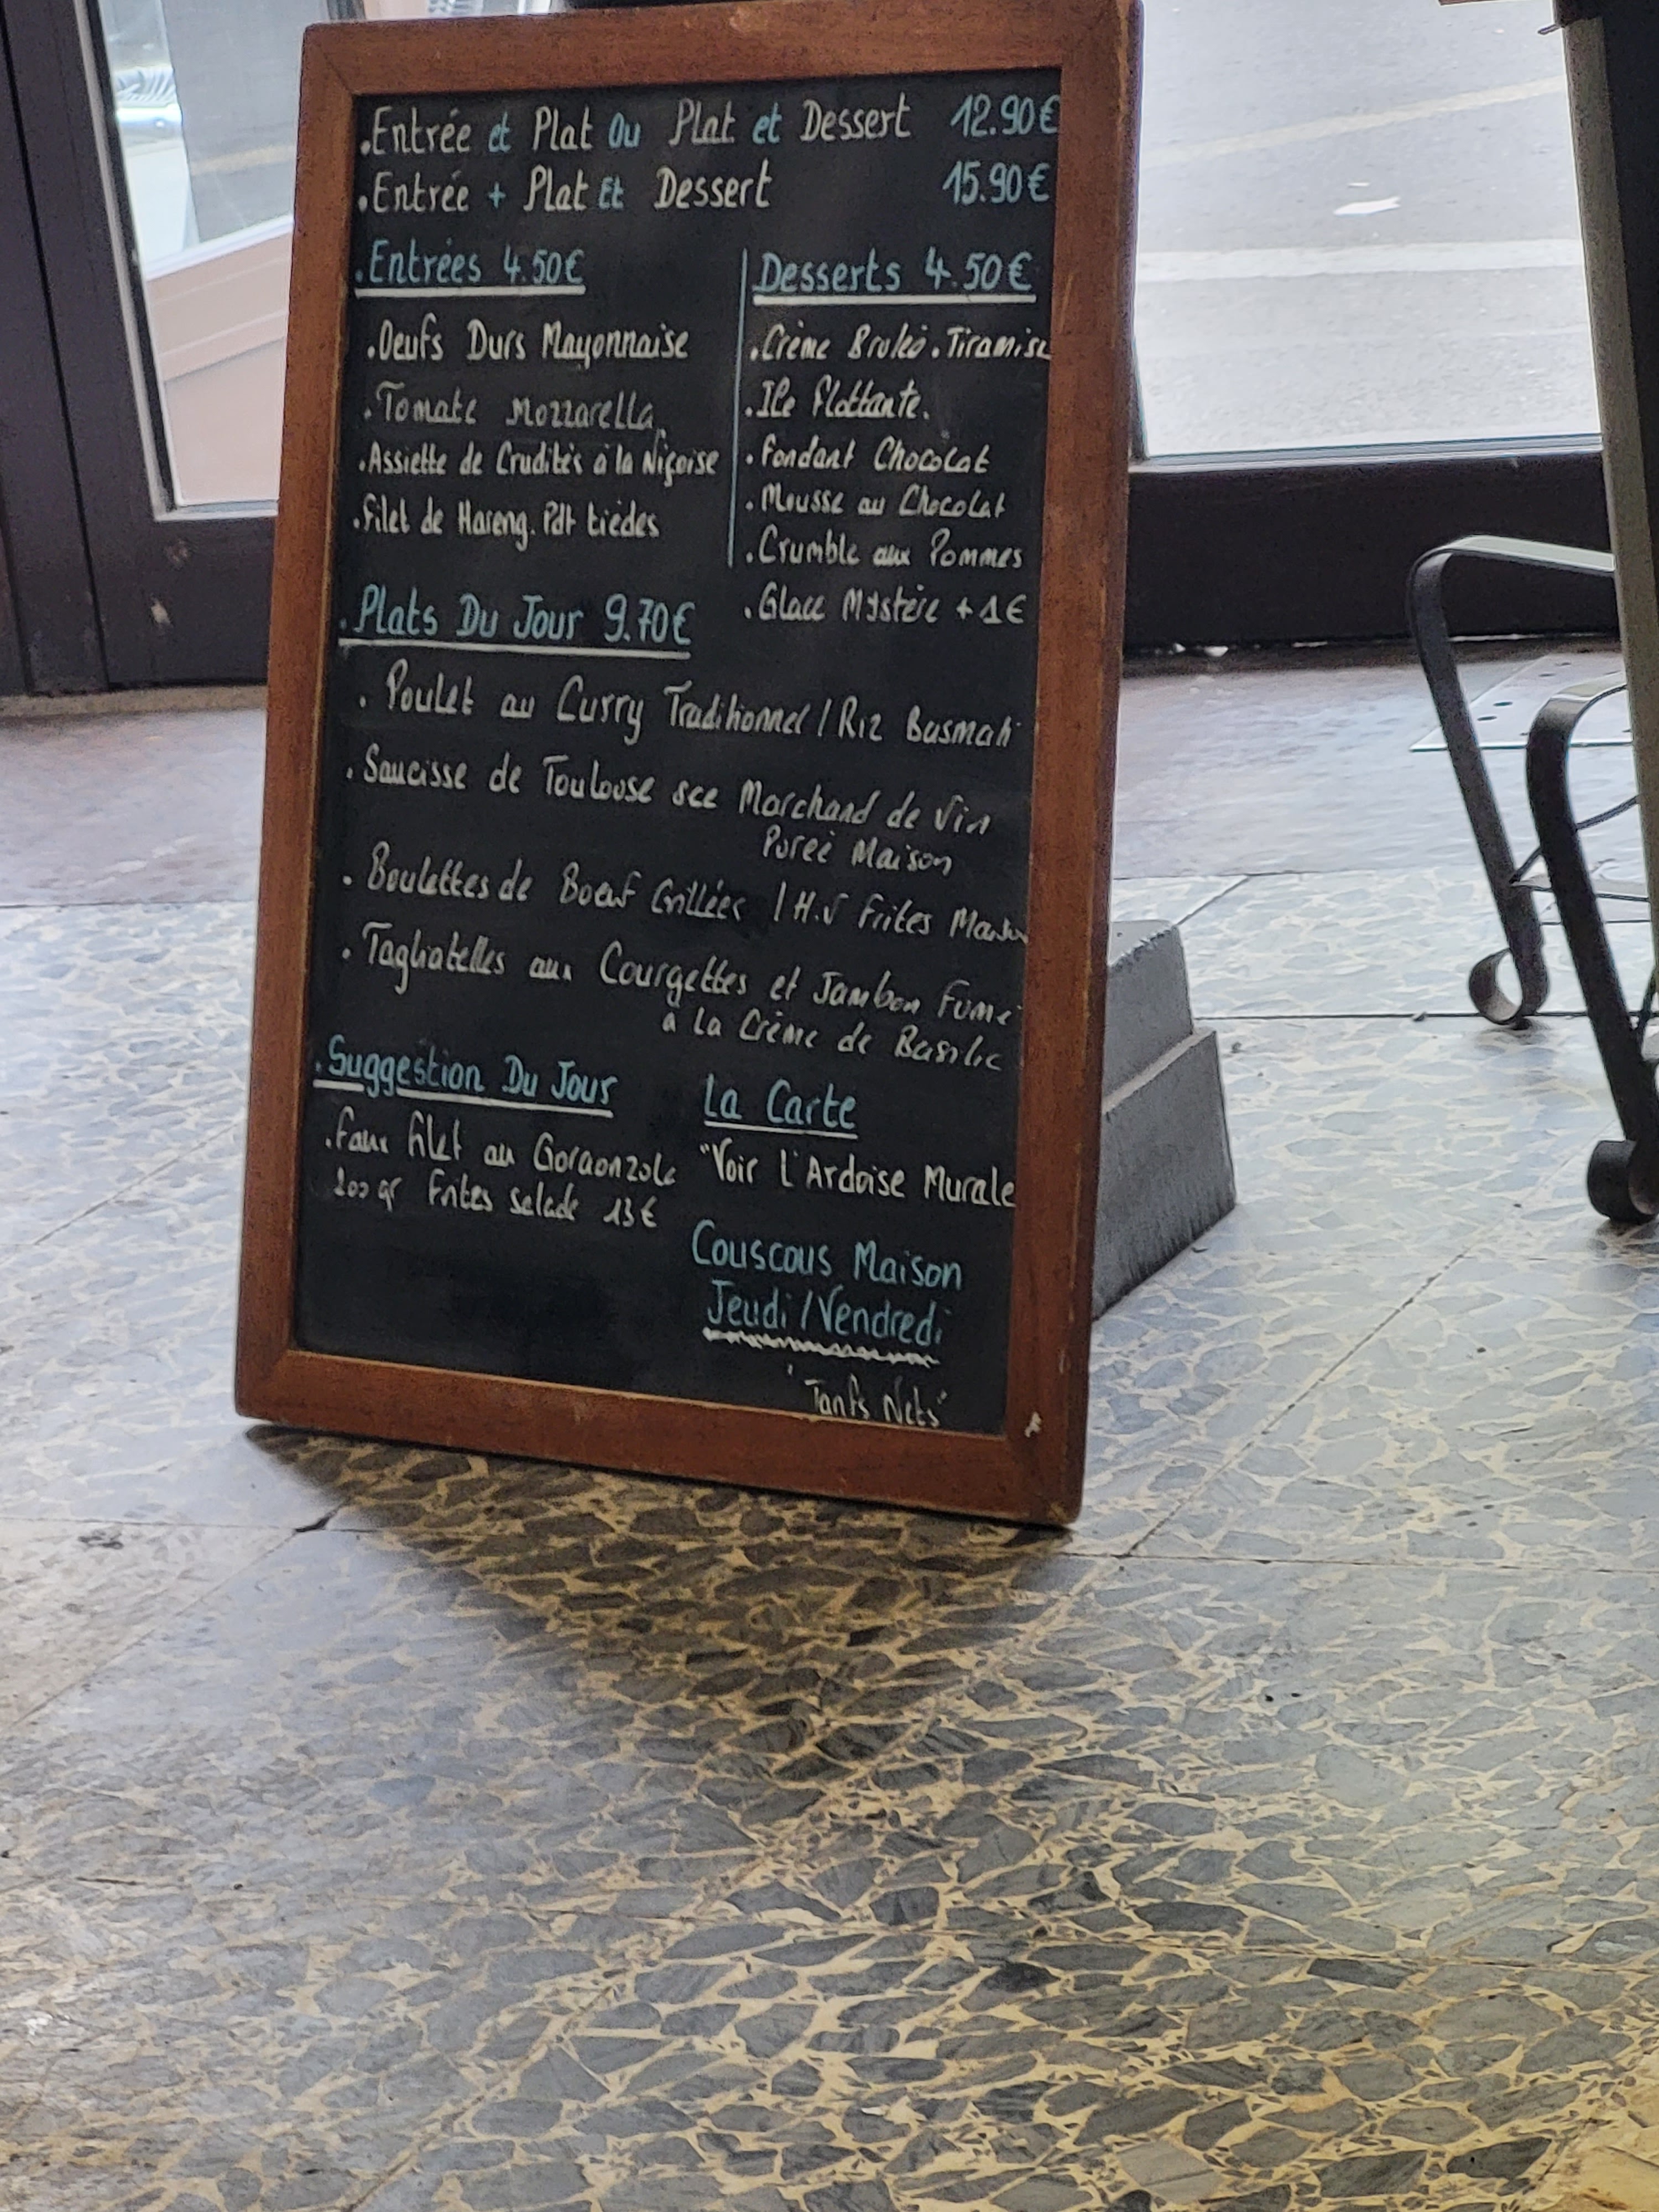 .Entrée et Plat Ou Plat et Dessert 12.90€
.Entrée + Plat Et Dessert 15.90€
.Entrées 4.50€
.Oeufs Durs Mayonnaise
.Tomate Mozzarella
.Assiette de Crudités à la Niçoise
.Filet de Hareng. Pdt tièdes
Desserts 4.50€
.Crème Brulée .Tiramisu
.Ile flottante.
.Fondant Chocolat
.Mousse au Chocolat
.Crumble aux Pommes
.Glace Mystère +1€
.Plats Du Jour 9.70€
. Poulet au Curry Traditionnel / Riz Basmati
. Saucisse de Toulouse sce Marchand de Vin
Purée Maison
. Boulettes de Boeuf Grillées / H.V Frites Maison
. Tagliatelles aux Courgettes et Jambon Fumé
a La Crème de Basilic
.Suggestion Du Jour
.Faux filet au Gorgonzola
200 gr Frites salade 13€
La Carte
"Voir L'Ardoise Murale
Couscous Maison
Jeudi / Vendredi
"Tarifs Nets"